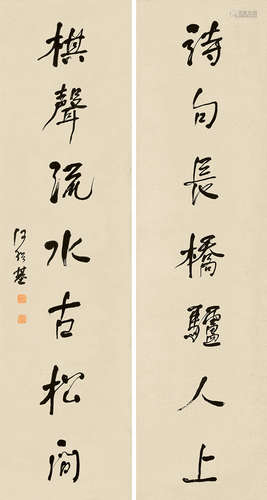 詩句長橋驢人上
棋聲流水古松間
何紹基